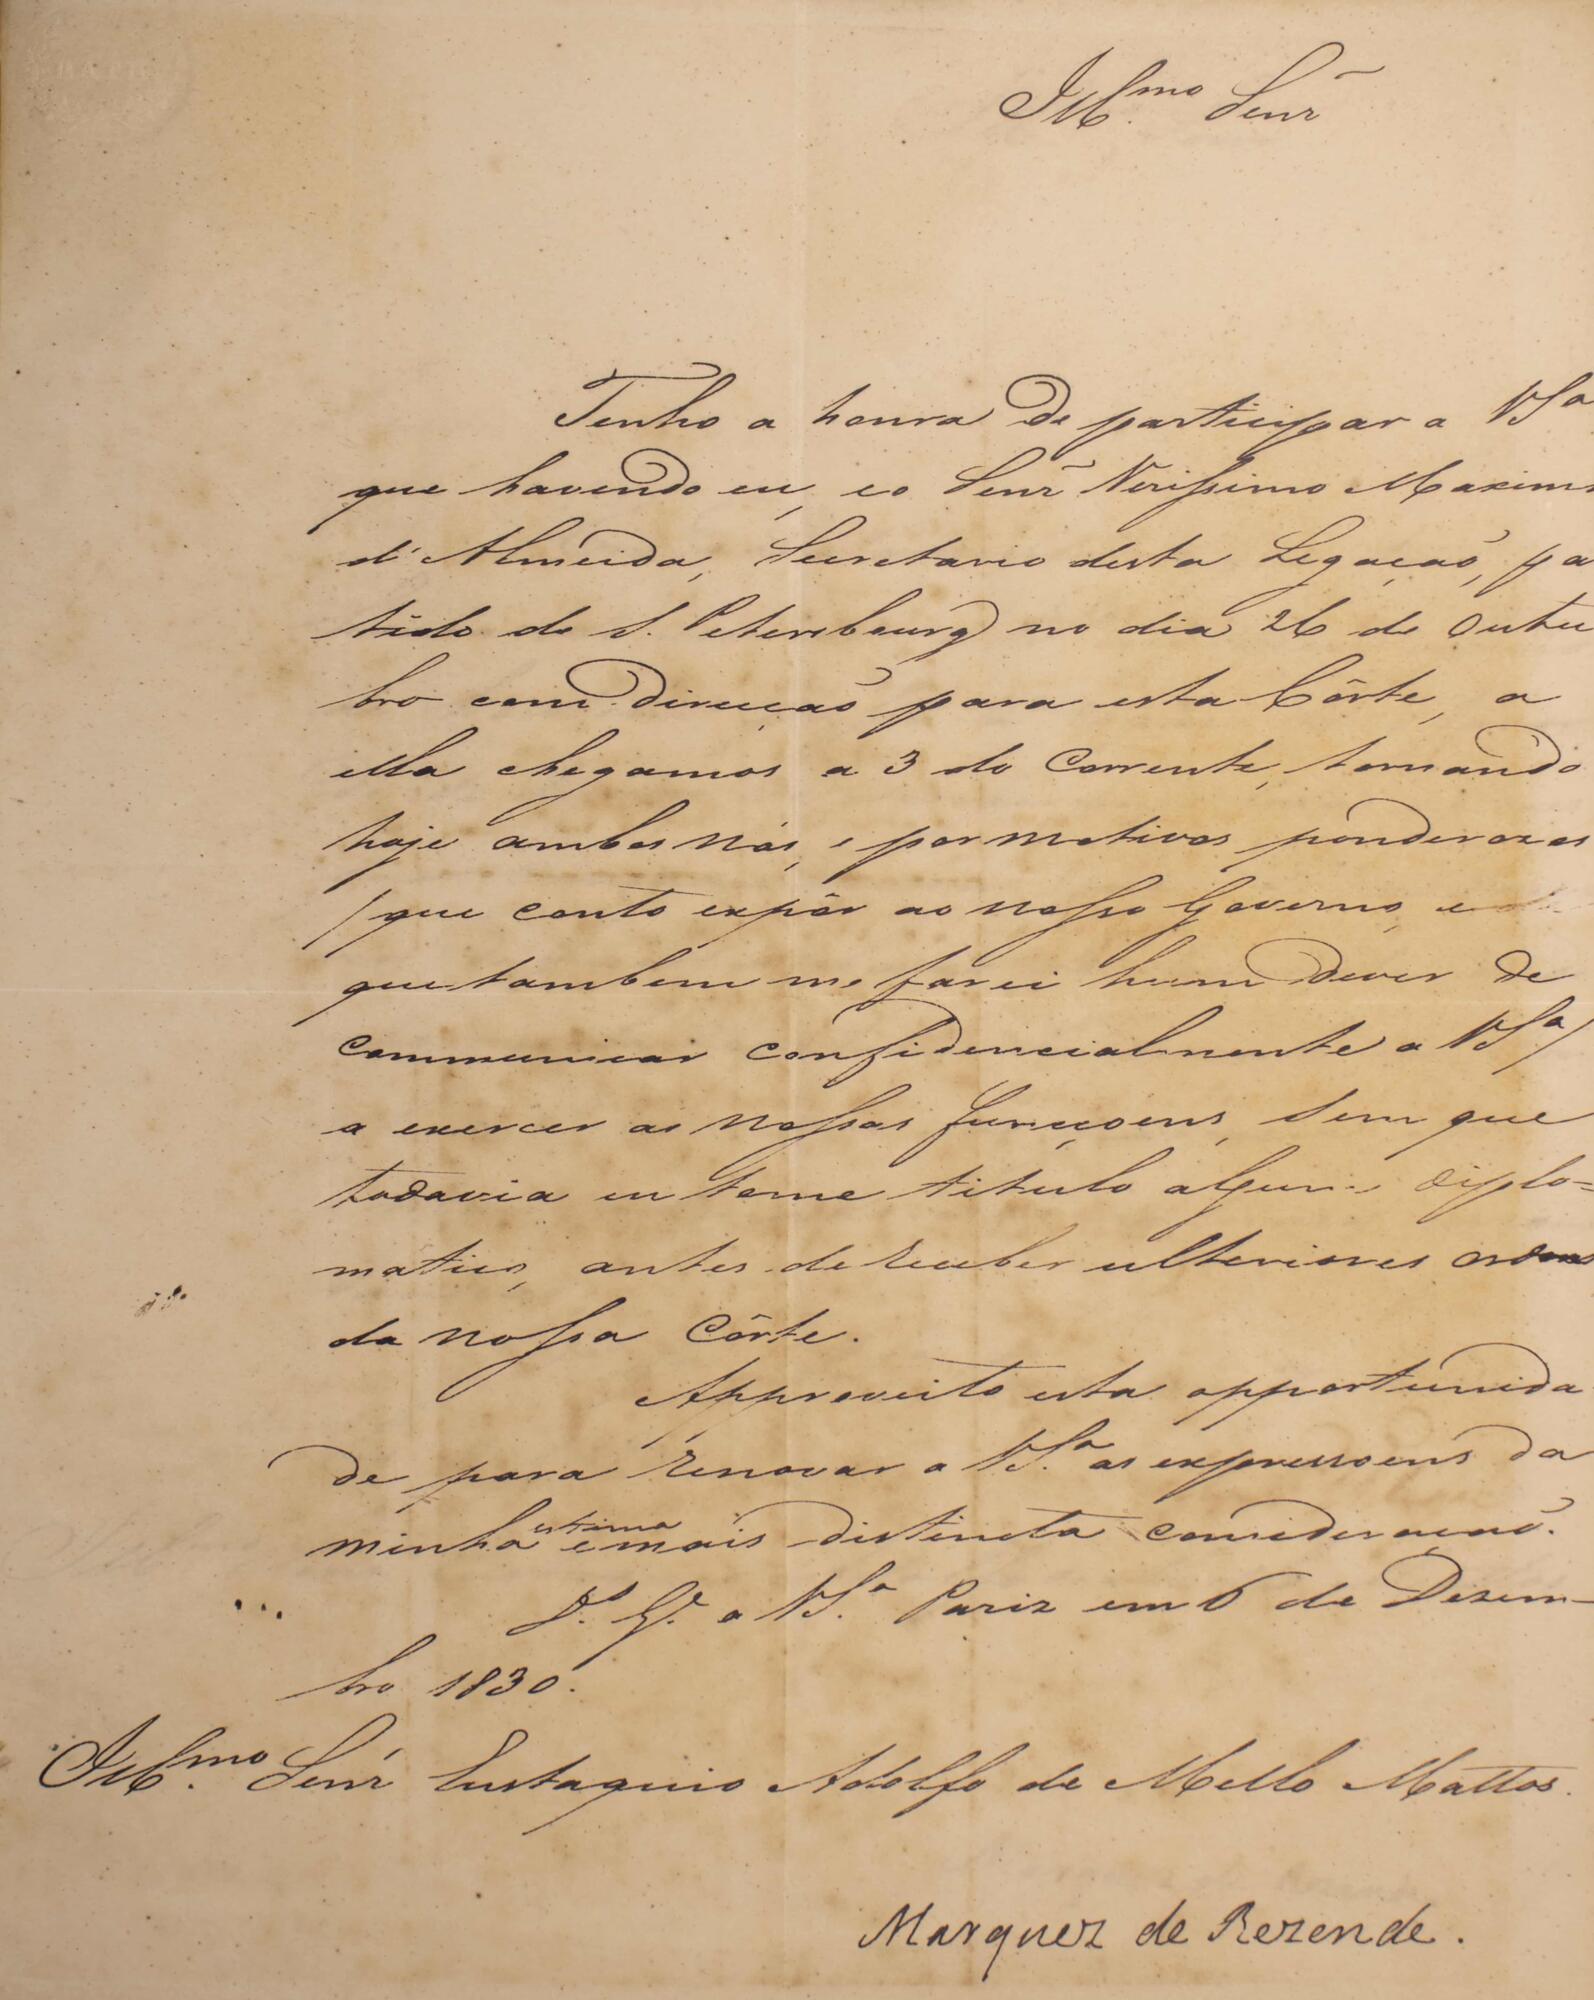 Ill.mo Senr
Tenho a honra de participar a VSa
que havendo eu, e o Senr Verissimo Maximo
d'Almeida, Secretario desta Legação, pa
tido de S. Petersbourg no dia 26 de Outu
bro com direcção para esta Côrte, a
ella chegamos a 3 do Corrente, tornando
hoje ambos nós, e por motivos ponderozos
/que conto expôr ao nosso Governo, e
que tambem me farei hum dever de
communicar confidencialmente a VSa/
a exercer as nossas funçoens, sem que
todavia eu tome titulo algum diplo=
matico, antes de receber ulteriores ordens
da nossa Côrte.
Approveito esta opportunida
de para renovar a VS.a as expressoens da
minha estima e mais distincta consideração.
D.s G.e a VS.a Pariz em 6 de Dezem-
bro 1830.
Ill.mo Senr Eustaquio Adolfo de Mello Mattos.
Marquez de Rezende.